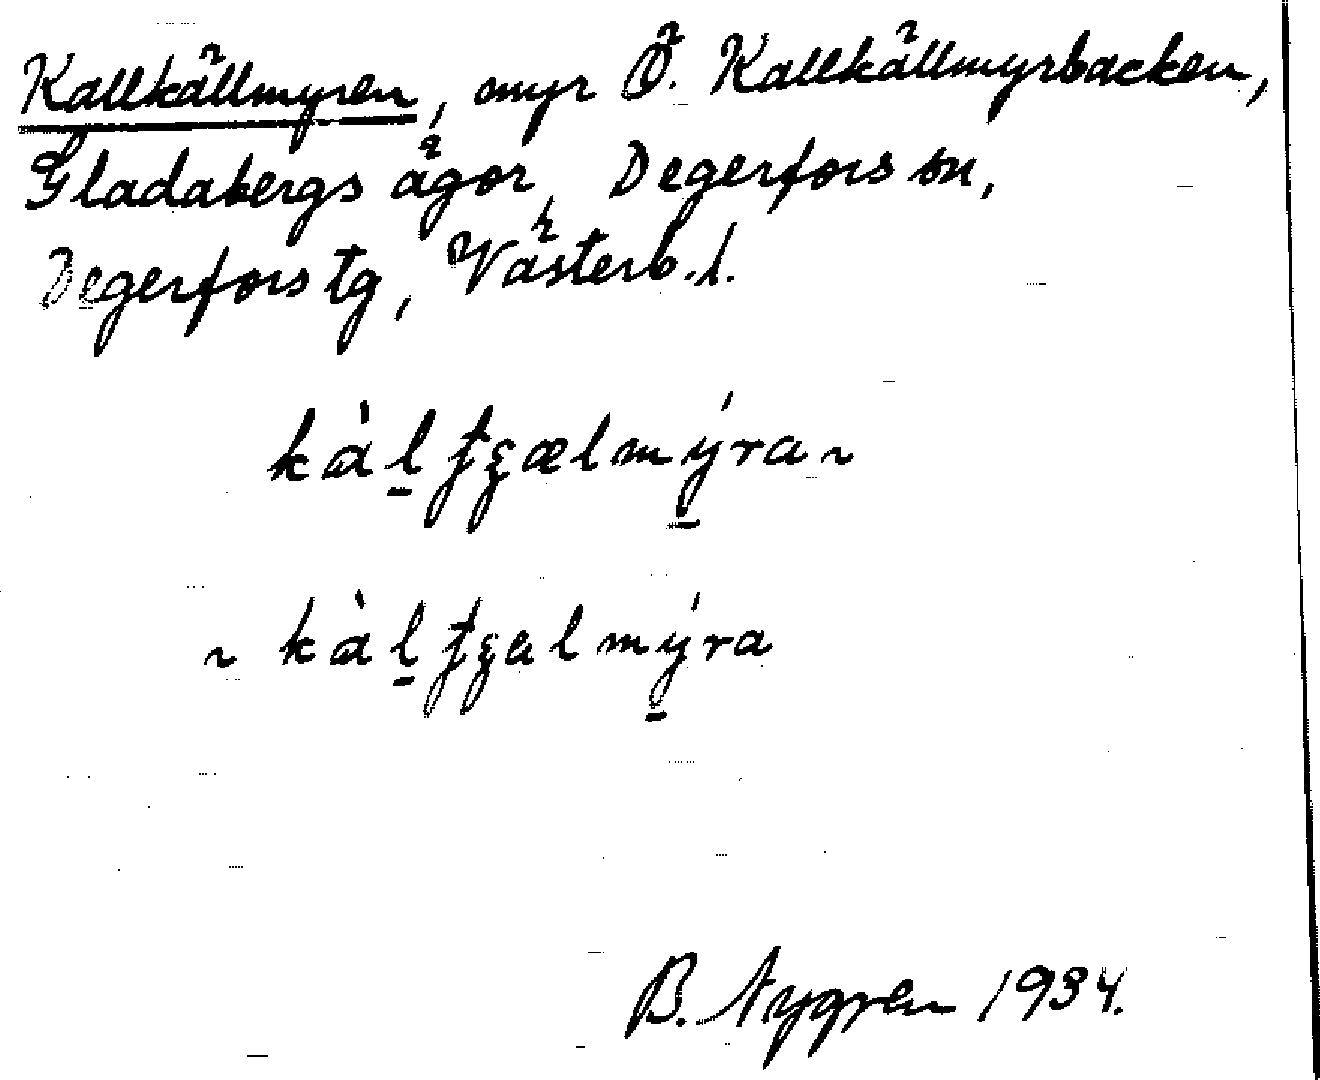 Kallkällmyren, myr Ö. Kallkällmyrbacken,
Gladabergs ägor, Degerfors sn,
Degerfors tg, Västerb. l.
kàl̠ tʒælmý̠ra ~
~ kàl̠ tʒalmý̠ra
B. Nygren 1934.